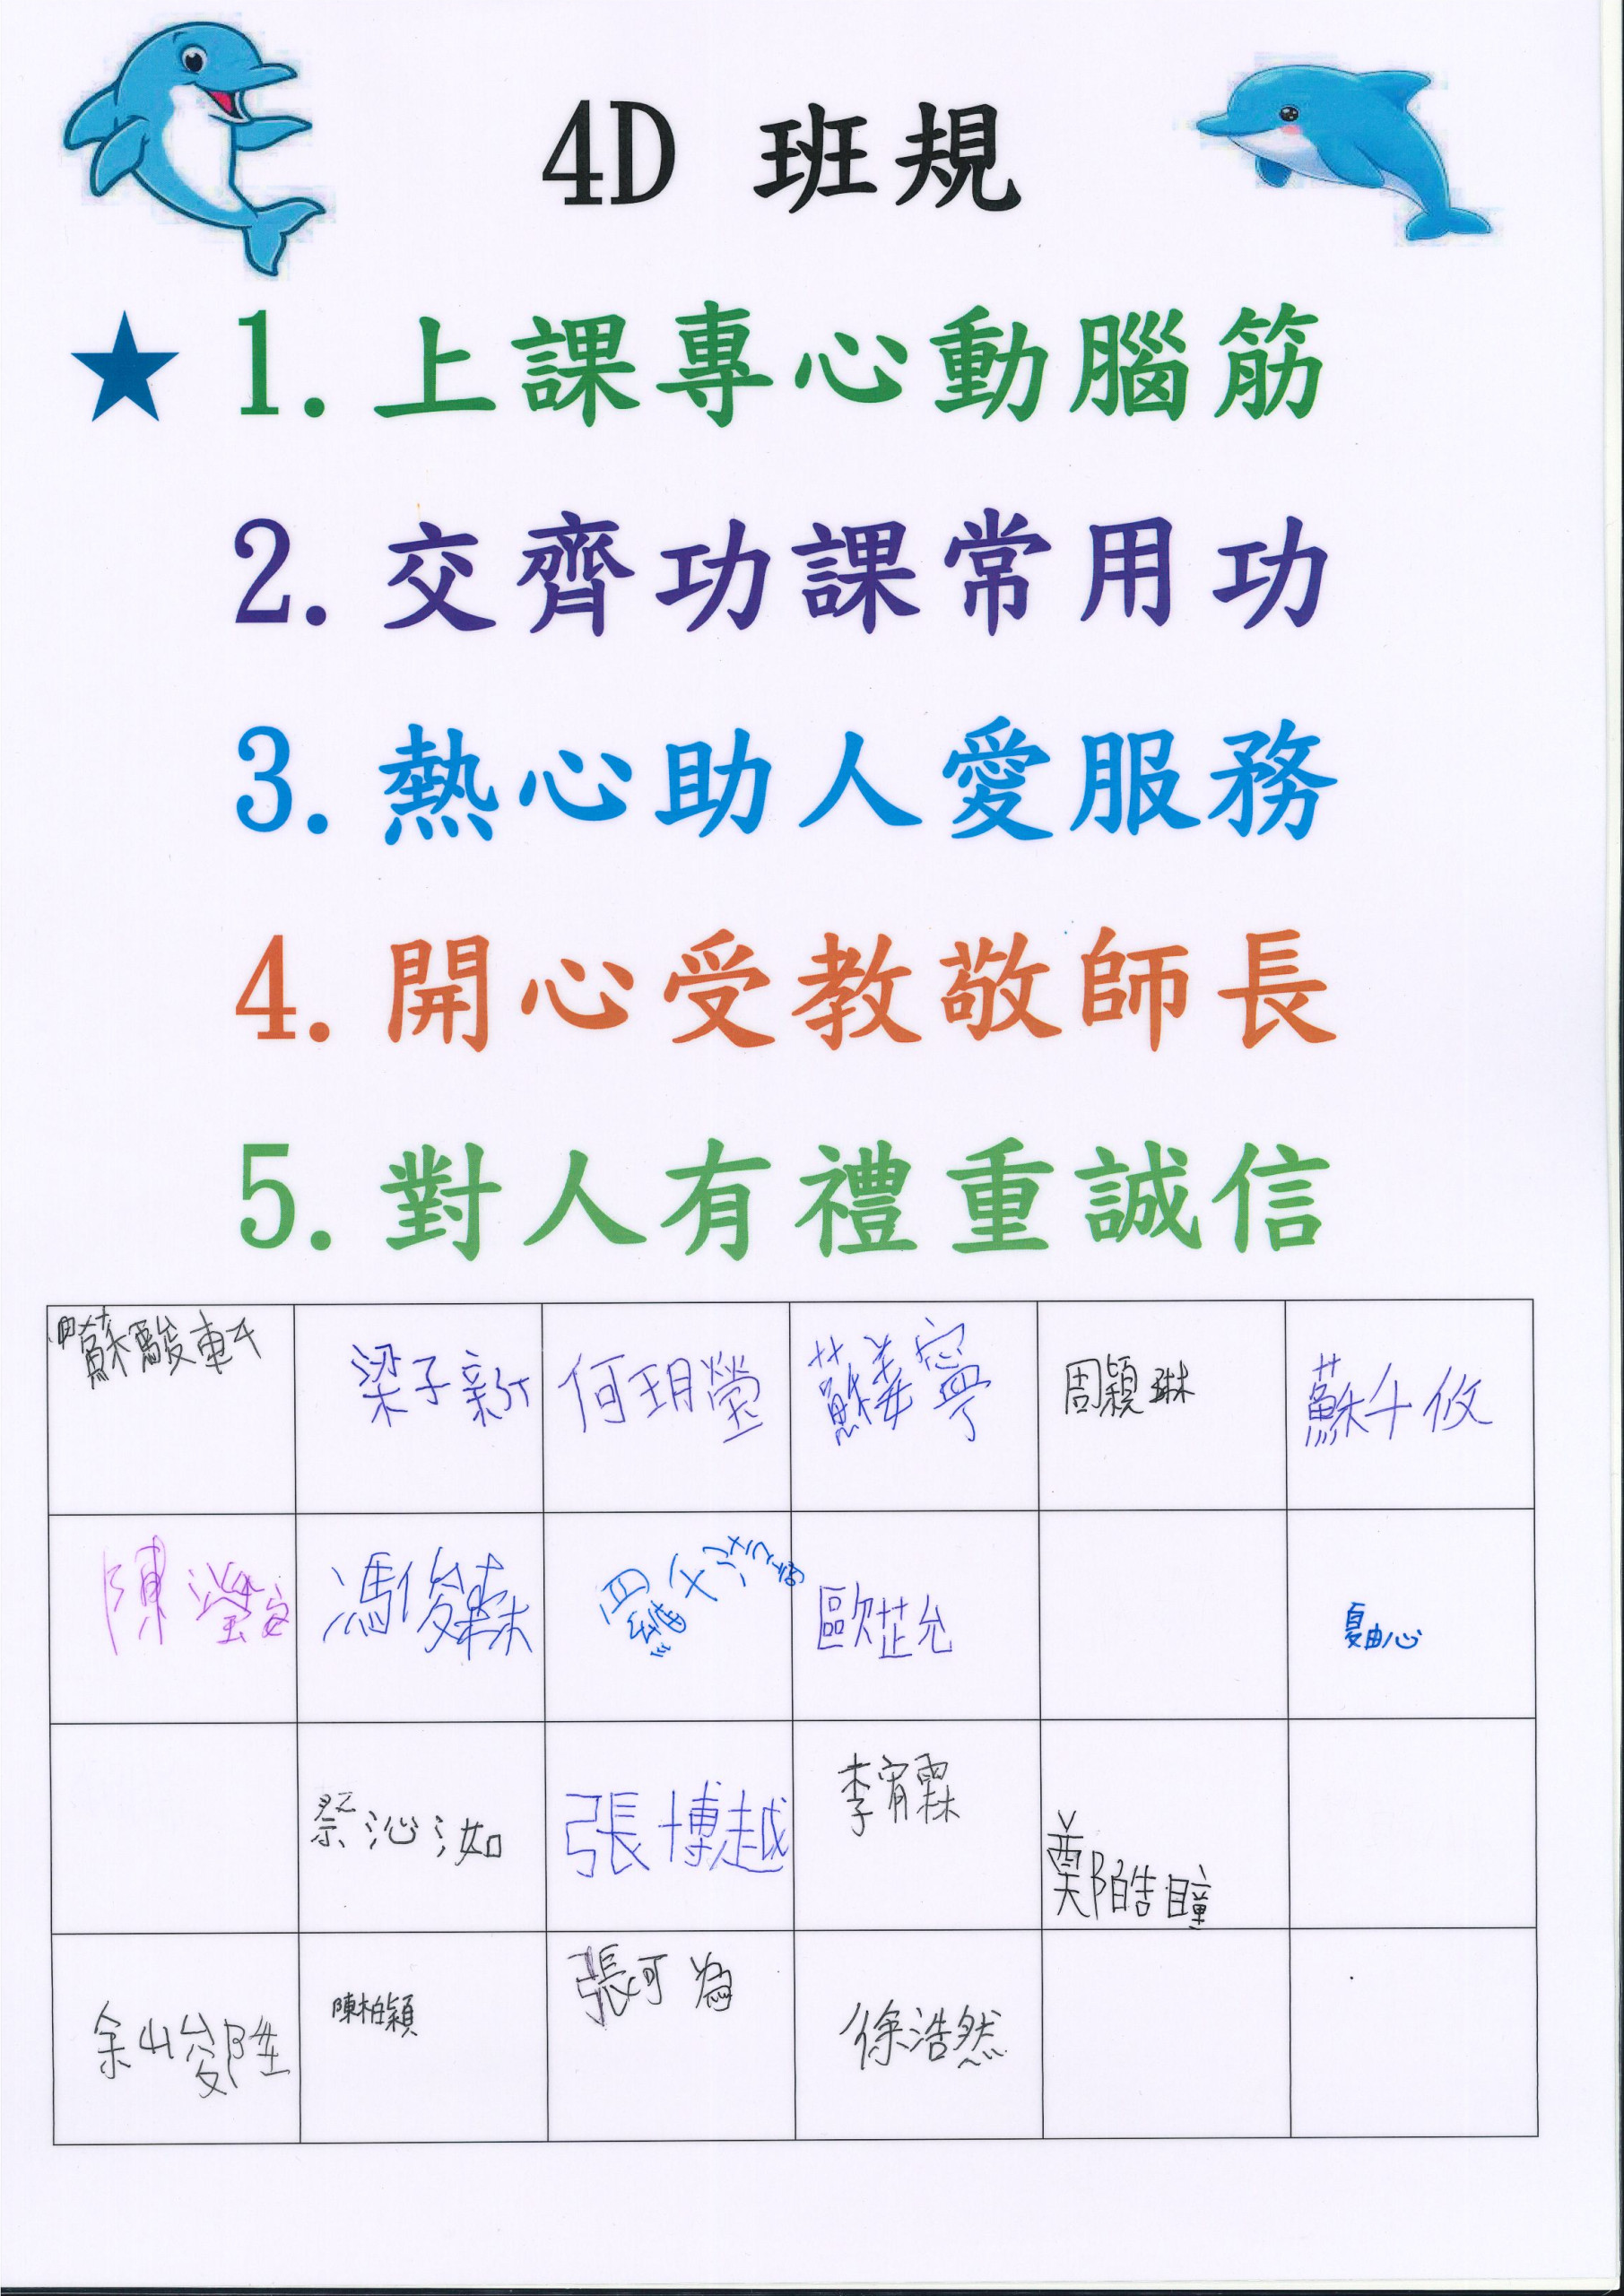 4D 班規
★ 1. 上課專心動腦筋
2. 交齊功課常用功
3. 熱心助人愛服務
4. 開心受教敬師長
5. 對人有禮重誠信
蘇駿軒 梁子新 何玥瑩 蘇羙寧 周穎琳 蘇千攸
陳瀅安 馮俊森 歐芷允 夏由心
張博越 李宥霖 鄭皓瞳
余峻陞 陳柏穎 張可為 徐浩然